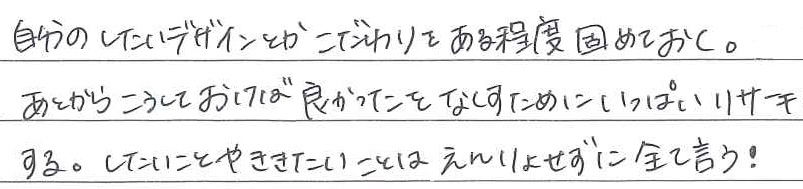 自分のしたいデザインとかこだわりをある程度固めておく。
あとからこうしておけば良かったをなくすためにいっぱいリサーチ
する。したいことやききたいことはえんりょせずに全て言う！